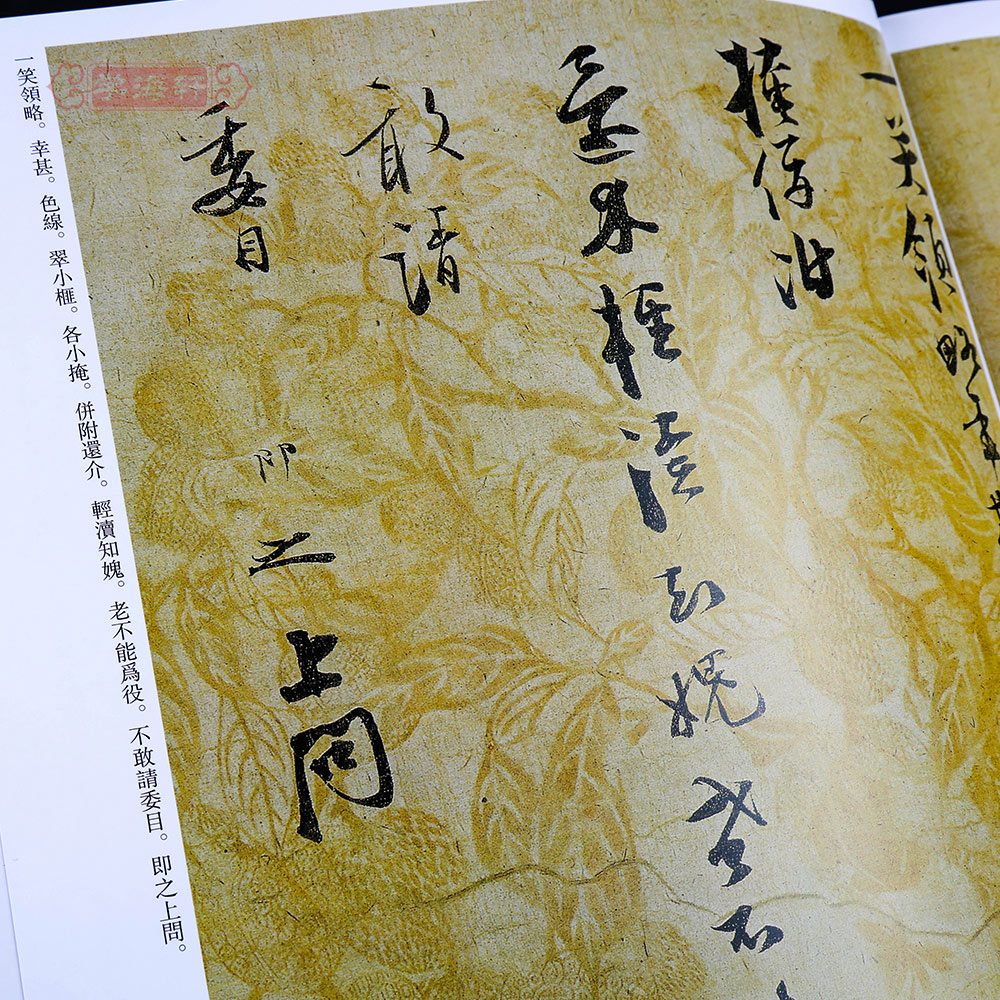 一笑領略幸
掩併附
還介輕瀆知媿老不
敢請
委目
即之上問
一笑領略。幸甚。色線。翠小榧。各小掩。併附還介。輕瀆知媿。老不能爲役。不敢請委目。即之上問。
學海軒